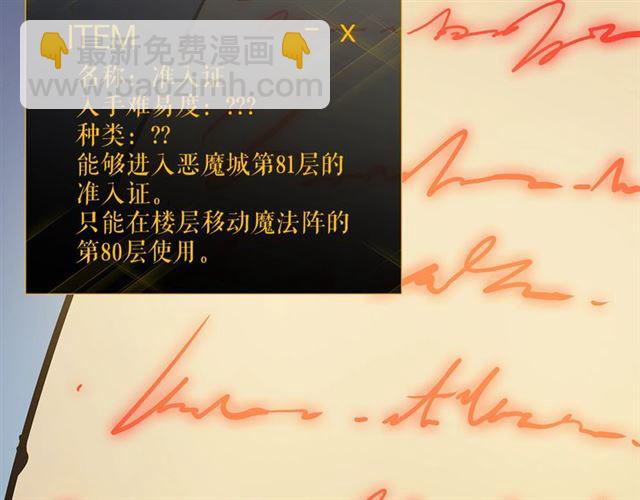 ITEM
– X
👇最新免费漫画👇
www.baozimh.com
名称：准入证
入手难易度：???
种类：??
能够进入恶魔城第81层的
准入证。
只能在楼层移动魔法阵的
第80层使用。